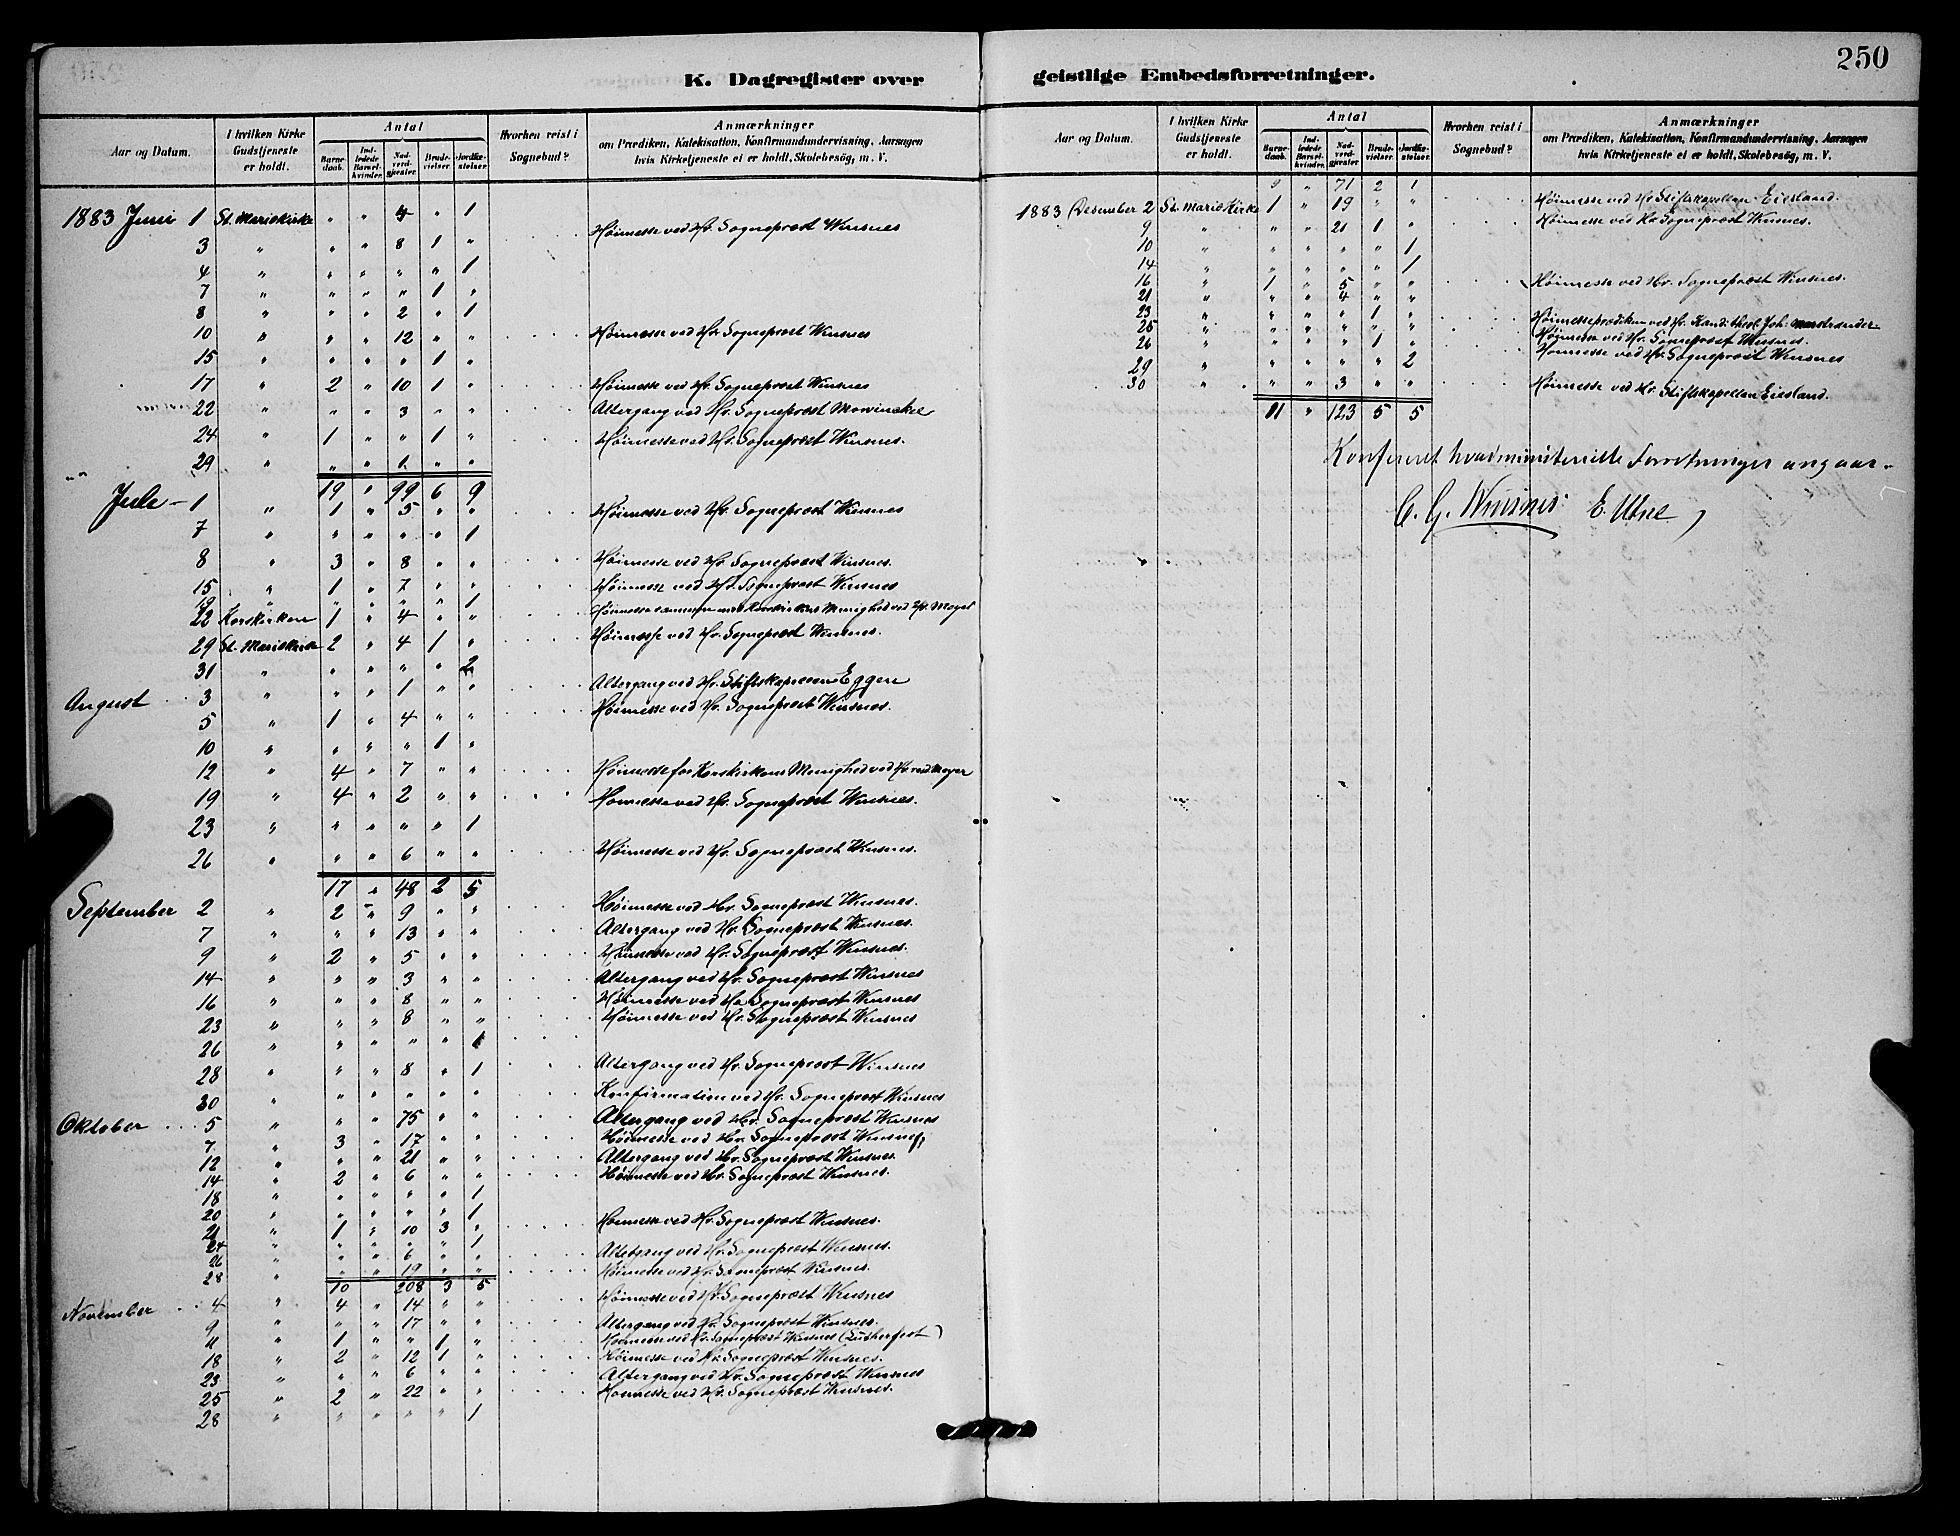 250
K. Dagregister over geistlige Embedsforretninger.
Aar og Datum. | I hvilken Kirke Gudstjeneste er holdt. | Antal | Barnedaab. | Indledede Barselkvinder. | Nadverdgjester. | Brudevielser. | Jordfæstelser. | Hvorhen reist i Sognebud? | Anmærkninger om Prædiken, Katekisation, Konfirmandundervisning, Aarsagen hvis Kirketjeneste ei er holdt, Skolebesög, m. V.
1883 Juni 1 St. Mariekirke " " 4 " 1
3 " " " 8 1 " Høimesse ved Hr. Sogneprest Winsnes
4 " " " " " 1
7 " " " " 1 "
8 " " " 2 " 1
10 " " " 12 " " Høimesse ved Hr. Sogneprest Winsnes
15 " " " " 1 "
17 " 2 " 10 1 " Høimesse ved Hr. Sogneprest Winsnes
22 " " " 3 " " Altergang ved Hr. Sogneprest Mowinckel
24 " 1 " " 1 " Høimesse ved Hr. Sogneprest Winsnes.
29 " " " 1. " "
19 " 99 6 9
Jule - 1 " 1 " 5 " " Høimesse ved Hr. Sogneprest Winsnes
7 " " " " " 1
8 " 3 " 8 " " Høimesse ved Hr. Sogneprest Winsnes.
15 " 1 " 7 " " Høimesse ved Hr. Sogneprest Winsnes
19 " " " " " 1
22 Korskirken 1 " 4 " " Høimesse sammen med Korskirkens Menighed ved Hr. Meyer
29 St. Mariekirke 2 " 4 1 " Høimesse ved Hr. Sogneprest Winsnes.
31 " " " " " 2
August 3 " " " 1 " " Altergang ved Hr. Stiftskapellan Eggen
5 " 1 " 4 " " Høimesse ved Hr. Sogneprest Winsnes.
10 " " " " 1 "
12 " 4 " 7 " " Høimesse for Korskirkens Menighed ved Meyer
19 " 4 " 2 " " Høimesse ved Hr. Sogneprest Winsnes.
23 " " " " " 1
26 " " " 6 " " Høimesse ved Hr. Sogneprest Winsnes.
17 " 48 2 5
September 2 " 2 " 9 " " Høimesse ved Hr. Sogneprest Winsnes.
7 " " " 13 " " Altergang ved Hr. Sogneprest Winsnes.
9 " 2 " 5 " " Høimesse ved Hr. Sogneprest Winsnes.
14 " " " 3 " " Altergang ved Hr. Sogneprest Winsnes
16 " " " 8 " " Høimesse ved Hr Sogneprest Winsnes
23 " " " 8 " " Høimesse ved Hr. Sogneprest Winsnes
26 " " " " " 1
28 " " " 8 " 1 Altergang ved Hr. Sogneprest Winsnes
30 " " " " " " Konfirmation ved Hr. Sogneprest Winsnes
Oktober 5 " " " 75 " " Altergang ved Hr. Sogneprest Winsnes
7 " 3 " 17 " " Høimesse ved Hr. Sogneprest Winsnes
12 " " " 21 " " Altergang ved Hr. Sogneprest Winsnes
14 " 2 " 6 " " Høimesse ved Hr. Sogneprest Winsnes.
18 " " " " " 1
20 " " " " " 1
21 " 1 " 10 3 " Høimesse ved Hr. Sogneprest Winsnes.
24 " " " " " 1
26 " " " 6 " " Altergang ved Hr. Sogneprest Winsnes.
28 " " " 19 " " Høimesse ved Hr. Sogneprest Winsnes.
10 208 3 5
November 4 " 4 " 14 " " Høimesse ved Hr. Sogneprest Winsnes
9 " " " 17 " " Altergang ved Hr. Sogneprest Winsnes.
11 " 1 " " 1 " Høimesse ved Hr. Sogneprest Winsnes (Lutherfest)
18 " 2 " 12 1 " Høimesse ved Hr. Sogneprest Winsnes.
23 " " " 6 " " Altergang ved Hr. Sogneprest Winsnes
25 " 2 " 22 " " Høimesse ved Hr. Sogneprest Winsnes.
28 " " " " " 1
Aar og Datum. | I hvilken Kirke Gudstjeneste er holdt. | Antal | Barnedaab. | Indledede Barselkvinder. | Nadverdgjester. | Brudevielser. | Jordfæstelser. | Hvorhen reist i Sognebud? | Anmærkninger om Prædiken, Katekisation, Konfirmandundervisning, Aarsagen hvis Kirketjeneste ei er holdt, Skolebesög, m. V.
9 " 71 2 1
1883 Desember 2 St. Marie Kirke 1 " 19 " " Høimesse ved Hr Stiftskapellan Eiesland.
9 " " " 21 1 " Høimesse ved Hr Sogneprest Winsnes.
10 " " " " " 1
14 " " " " " 1
16 " 1 " 5 " " Høimesse ved Hr. Sogneprest Winsnes.
21 " " " 4 " "
23 " " " " 1 " Høimesseprædiken ved Hr. Kand. theol. Joh.
25 " " " " " " Høimesse ved Hr. Sogneprest Winsnes.
26 " " " " 1 " Høimesse ved Hr. Sogneprest Winsnes
29 " " " " " 2
30 " " " 3 " " Høimesse ved Hr. Stiftskapellan Eiesland.
11 " 123 5 5
Konfereret hvad ministerielle Forretninger angaar.
C. G. Winsnes E. Utne